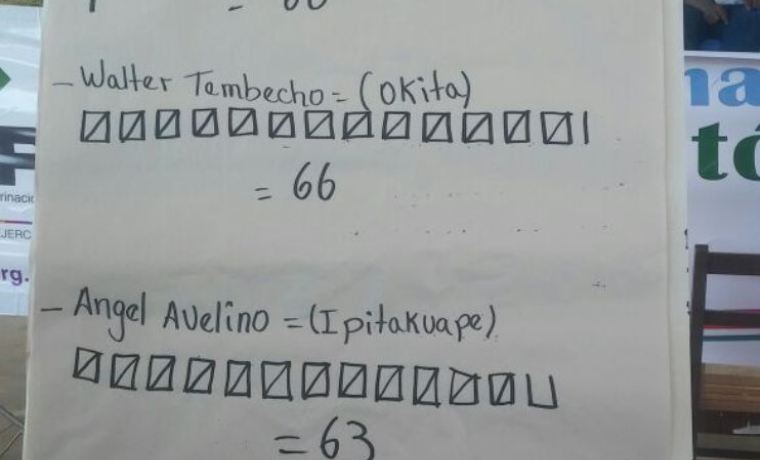 - Walter Tambecho = (Okita)
= 66
- Angel Avelino = (Ipitakuape)
= 63
na
tó
rinació
JERC
rg.